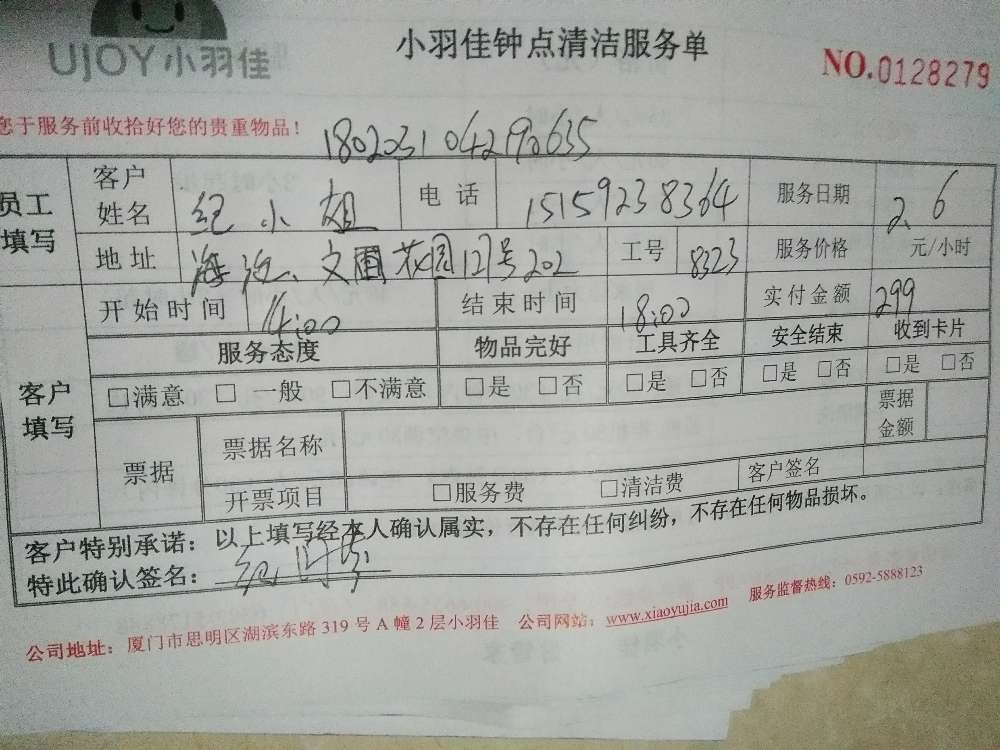 UJOY小羽佳
小羽佳钟点清洁服务单
NO.0128279
您于服务前收拾好您的贵重物品！
员工填写
客户姓名 纪小姐 电话 15159238364 服务日期 2.6
地址 海沧、文圃花园121号202 工号 8323 服务价格 元/小时
客户填写
开始时间 14:00 结束时间 18:00 实付金额 299
服务态度 物品完好 工具齐全 安全结束 收到卡片
□满意 □一般 □不满意 □是 □否 □是 □否 □是 □否 □是 □否
票据 票据名称 票据金额
开票项目 □服务费 □清洁费 客户签名
客户特别承诺：以上填写经本人确认属实，不存在任何纠纷，不存在任何物品损坏。
特此确认签名：
公司地址：厦门市思明区湖滨东路 319 号 A 幢 2 层小羽佳 公司网站：www.xiaoyujia.com 服务监督热线：0592-5888123